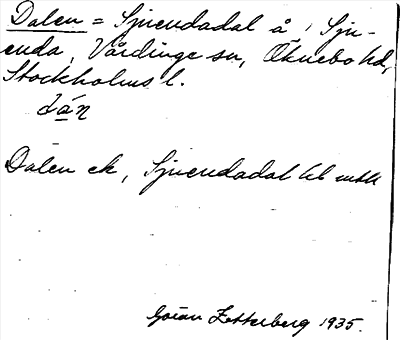 Dalen = Sjuendadal å Sju-
enda, Vårdinge sn, Öknebo hd,
Stockholms l.
dán
Dalen ek, Sjuendadal lb
Göran Zetterberg 1935.